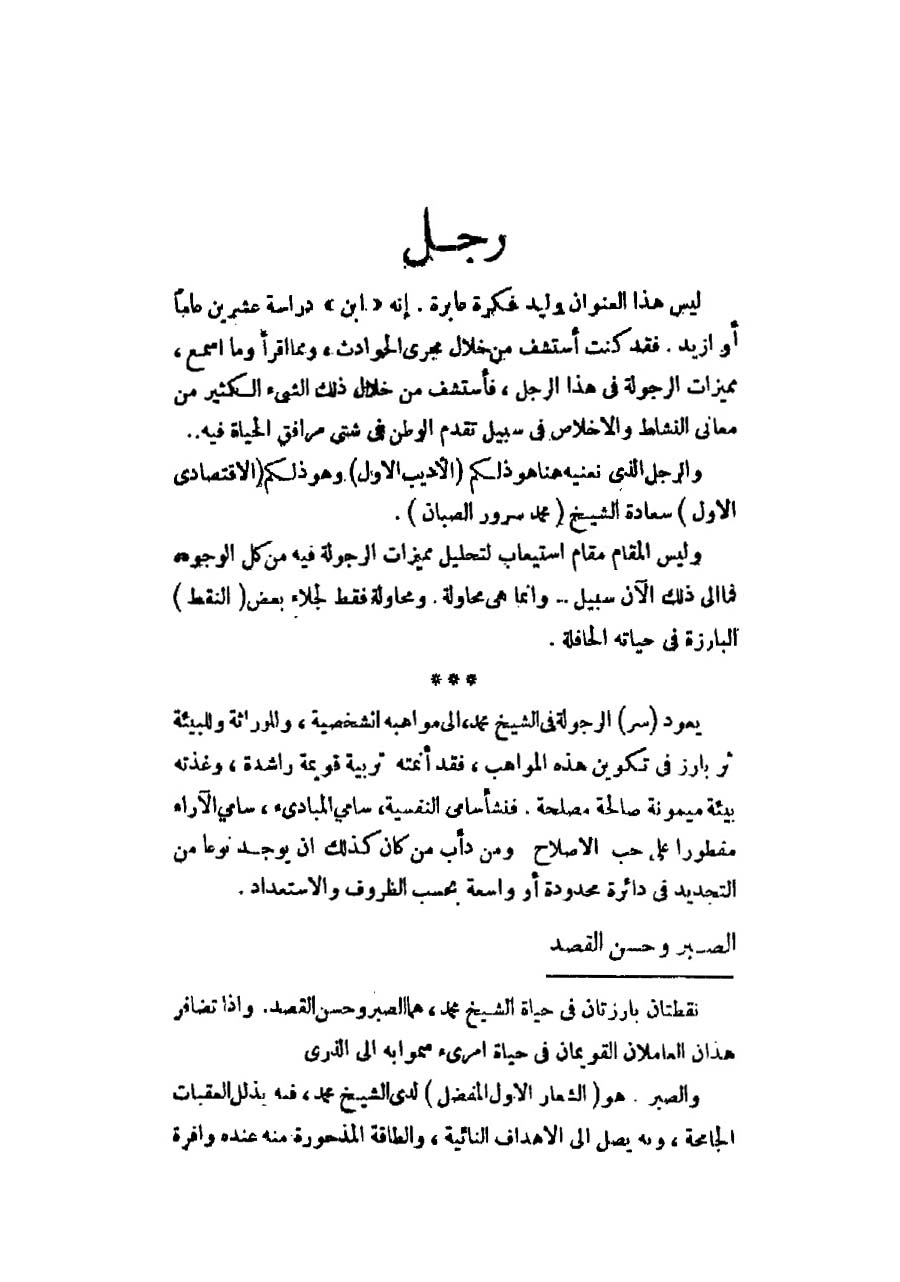 رجل
ليس هذا العنوان وليد فكرة عابرة . إنه « ابن » دراسة عشرين عاماً
أو ازيد . فقد كنت أستشف من خلال مجرى الحوادث ، ومما اقرأ وما اسمع ،
مميزات الرجولة فى هذا الرجل ، فأستشف من خلال ذلك الشىء الكثير من
معانى النشاط والاخلاص فى سبيل تقدم الوطن فى شتى مرافق الحياة فيه..
والرجل الذى نعنيه هنا هو ذلكم (الأديب الاول) وهو ذلكم (الاقتصادى
الاول ) سعادة الشيخ ( محمد سرور الصبان ) .
وليس المقام مقام استيعاب لتحليل مميزات الرجولة فيه من كل الوجوه
فما الى ذلك الآن سبيل .. وانما هى محاولة . ومحاولة فقط لجلاء بعض ( النقط )
البارزة فى حياته الحافلة .
***
يعود (سر) الرجولة فى الشيخ محمد، الى مواهبه الشخصية ، وللوراثة وللبيئة
ثر بارز فى تكوين هذه المواهب ، فقد أنمته تربية قويمة راشدة ، وغذته
بيئة ميمونة صالحة مصلحة . فنشأ سامى النفسية، سامي المبادىء ، سامي الآراء
مفطورا على حب الاصلاح ومن دأب من كان كذلك ان يوجد نوعا من
التجديد فى دائرة محدودة أو واسعة بحسب الظروف والاستعداد .
الصبر وحسن القصد
نقطتان بارزتان فى حياة الشيخ محمد ، هما الصبر وحسن القصد. واذا تضافر
هذان العاملان القويمان فى حياة امرىء سموا به الى الذرى
والصبر . هو ( الشعار الاول المفضل ) لدى الشيخ محمد ، فبه يذلل العقبات
الجامحة ، وبه يصل الى الاهداف النائية ، والطاقة المذخورة منه عنده وافرة